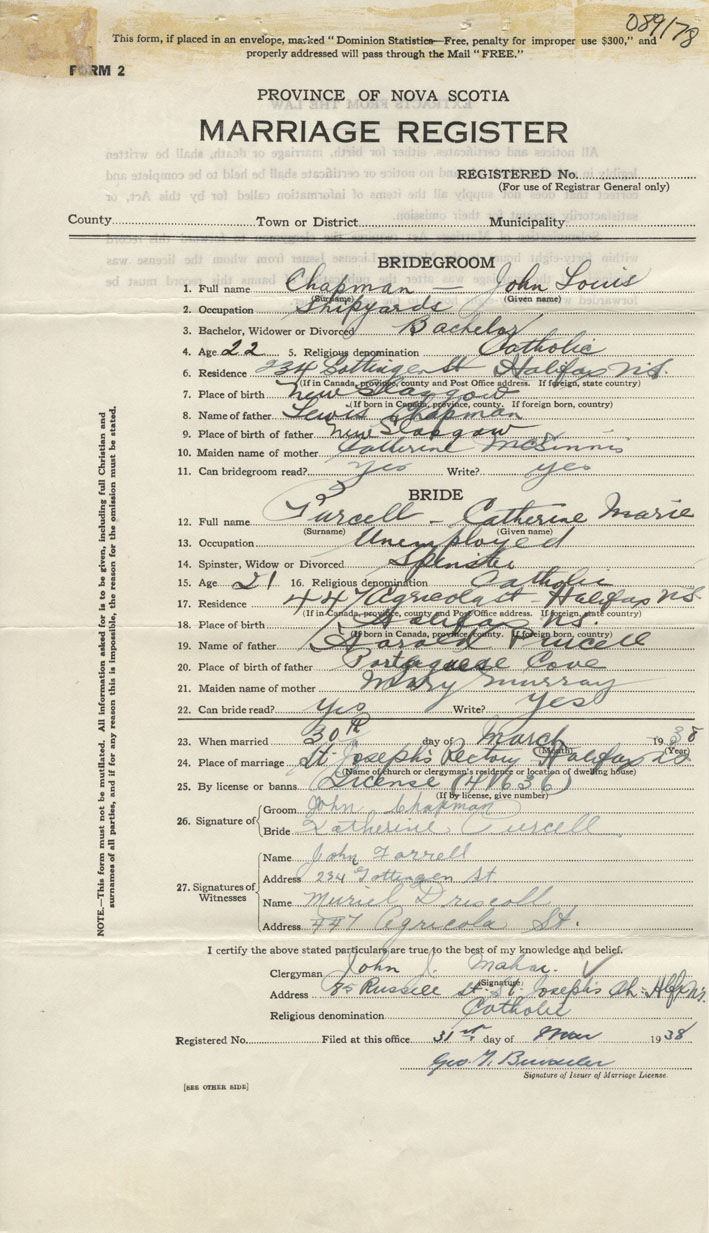 089178
This form, if placed in an envelope, marked "Dominion Statistics—Free, penalty for improper use $300," and
properly addressed will pass through the Mail "FREE."
FORM 2
PROVINCE OF NOVA SCOTIA
MARRIAGE REGISTER
REGISTERED No.
(For use of Registrar General only)
County Town or District Municipality
BRIDEGROOM
1. Full name Chapman — John Louis
(Surname) (Given name)
2. Occupation Shipyards
3. Bachelor, Widower or Divorced Bachelor
4. Age 22 5. Religious denomination Catholic
6. Residence 234 Gottingen St Halifax N.S.
(If in Canada, province, county and Post Office address. If foreign, state country)
7. Place of birth New Glasgow
(If born in Canada, province, county. If foreign born, country)
8. Name of father Lewis Chapman
9. Place of birth of father New Glasgow
10. Maiden name of mother Catherine McGinnis
11. Can bridegroom read? yes Write? yes
BRIDE
12. Full name Purcell - Catherine Marie
(Surname) (Given name)
13. Occupation Unemployed
14. Spinster, Widow or Divorced Spinster
15. Age 21 16. Religious denomination Catholic
17. Residence 447 Agricola St - Halifax N.S.
(If in Canada, province, county and Post Office address. If foreign, state country)
18. Place of birth Halifax N.S.
(If born in Canada, province, county. If foreign born, country)
19. Name of father Harold Purcell
20. Place of birth of father Portuguese Cove
21. Maiden name of mother Mary Murray
22. Can bride read? Yes Write? Yes
23. When married 30th day of March 1938
(Month) (Year)
24. Place of marriage St. Joseph's Rectory Halifax
(Name of church or clergyman's residence or location of dwelling house)
25. By license or banns License (41636)
(If by license, give number)
26. Signature of Groom John Chapman
Bride Katherine Purcell
27. Signatures of Witnesses
Name John Farrell
Address 234 Gottingen St
Name Muriel Driscoll
Address 447 Agricola St.
I certify the above stated particulars are true to the best of my knowledge and belief.
Clergyman John J. Mahar.
(Signature)
Address 85 Russell St. St. Joseph's Ch. Hlfx N.S.
Religious denomination Catholic
Registered No. Filed at this office 31st day of Mar 1938
Geo
Signature of Issuer of Marriage License.
[SEE OTHER SIDE]
NOTE.—This form must not be mutilated. All information asked for is to be given, including full Christian and
surnames of all parties, and if for any reason this is impossible, the reason for the omission must be stated.